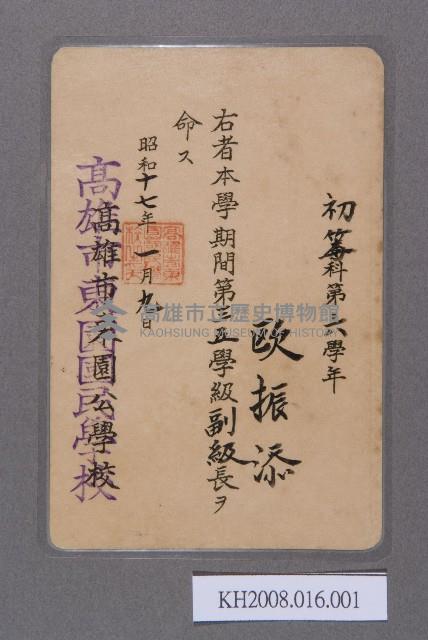 初等科第六學年
欧振添
右者本學期間第三五學級副級長ヲ
命ス
昭和十七年一月九日
高雄市東園國民學校
高雄市東園公學校
高雄市立歷史博物館
KAOHSIUNG MUSEUM OF HISTORY
KH2008.016.001